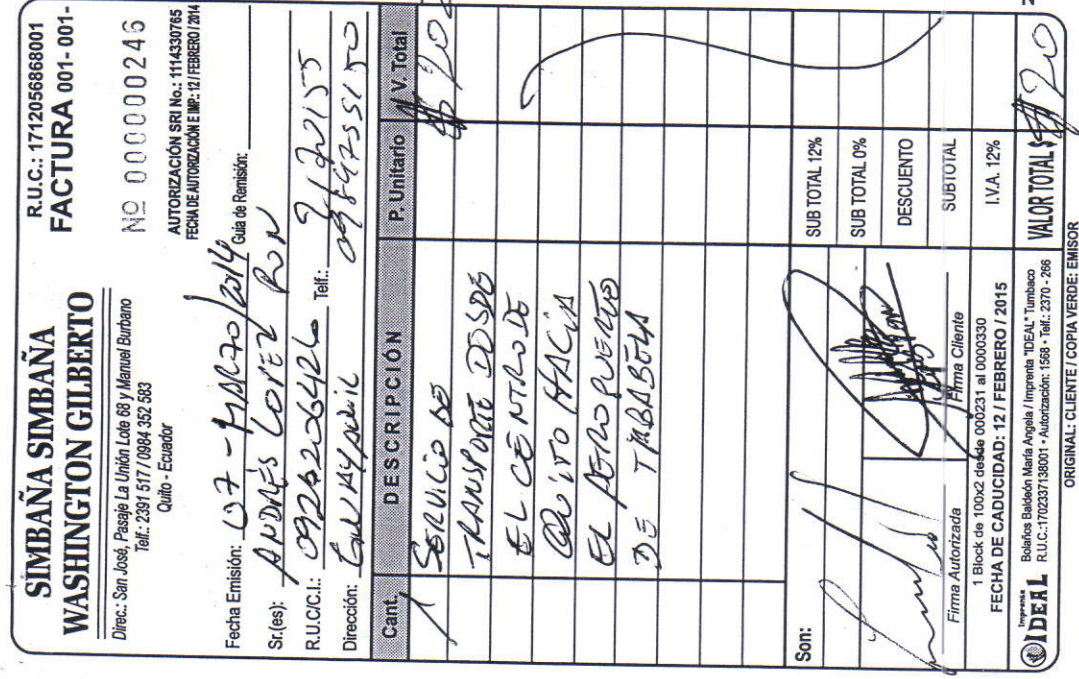 SIMBAÑA SIMBAÑA
WASHINGTON GILBERTO
Direc.: San José, Pasaje La Unión Lote 68 y Manuel Burbano
Telf.: 2391 517 / 0984 352 583
Quito - Ecuador
R.U.C.: 1712056868001
FACTURA 001- 001-
Nº 000000246
AUTORIZACIÓN SRI No.: 1114330765
FECHA DE AUTORIZACIÓN E IMP.: 12 / FEBRERO / 2014
Fecha Emisión: 07 - MARZO / 2014 Guia de Remisión:
Sr.(es): ANDRÉS LOPEZ RON
R.U.C/C.I.: 0926206426 Telf.:
Dirección: GUAYAQUIL
Cant. DESCRIPCIÓN P. Unitario V. Total
1 SERVICIO DE $ 20
TRANSPORTE DESDE
EL CENTRO DE
QUITO HACIA
EL AEROPUERTO
DE TABABELA
Son:
SUB TOTAL 12%
SUB TOTAL 0%
DESCUENTO
SUBTOTAL
I.V.A. 12%
VALOR TOTAL $ 20
Firma Autorizada Firma Cliente
1 Block de 100x2 desde 0000231 al 0000330
FECHA DE CADUCIDAD: 12 / FEBRERO / 2015
Imprenta IDEAL Bolaños Baldeón María Angela / Imprenta "IDEAL" Tumbaco
R.U.C.:1702337138001 • Autorización: 1568 • Telf.: 2370 - 266
ORIGINAL: CLIENTE / COPIA VERDE: EMISOR